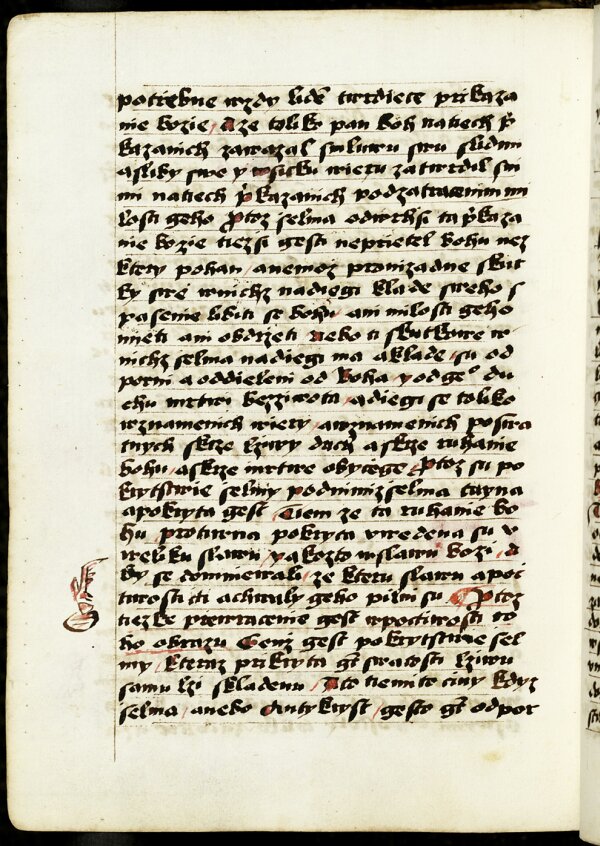 potrzebne wzdy lide twrdiece prikaza
nie bozie / a ze toliko pan boh na tiech p̃
kazanich zawazal smluwu swu s lidmi
a sliby swe y wsicku wieru zatwrdil sni
mi na tiech p̃kazanich pod zatracenim mi
losti geho Protoz selma odwrhsi ta p̃kaza
nie bozie tiezsi gest neprietel bohu nez
ktery pohan / anemoz pro nizadne skut
ky swe w nichz nadiegi klade sweho s
pasenie libiti se bohu / ani milosti geho
mieti ani obdrzeti Nebo ti skutkowe w
nichz selma nadiegi ma a klade / su od
porni a oddieleni od Boha / y od geo du
chu mrtwi bez ziwota / a diegi se toliko
w znamenich wiery / a w znamenich postra
tnych skrze lziwy duch a skrze ruhanie
bohu / a skrze mrtwe obyczege Protoz su po
krytstwie selmy pod nimiz selma tayna
a pokryta gest Ciem ze ta ruhanie bo
hu / protiwna pokryta vwedena su v
weliku slawu / yakozto w slawu bozi / a
by se domniewali / ze kteru slawu a poc
tiwosti cti a chwaly geho pilni su Protoz
tiezke prewracenie gest w poctiwosti to
ho obrazu Genz gest pokrytstwie sel
my / kteraz prikryta gt swatosti lziwu
samu lzi skladenu / A to tiemito ciny kdyz
selma / anebo Antykryst / gesto gt odpor